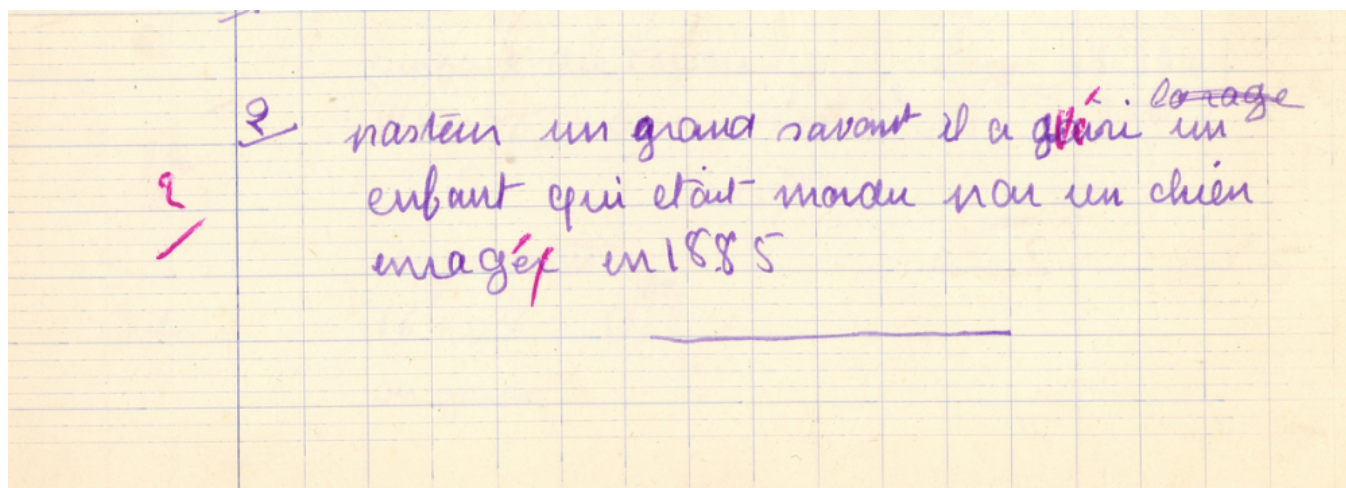 2 pasteur un grand savant il a guéri la rage un
enfant qui était mordu par un chien
2 enragée en 1885